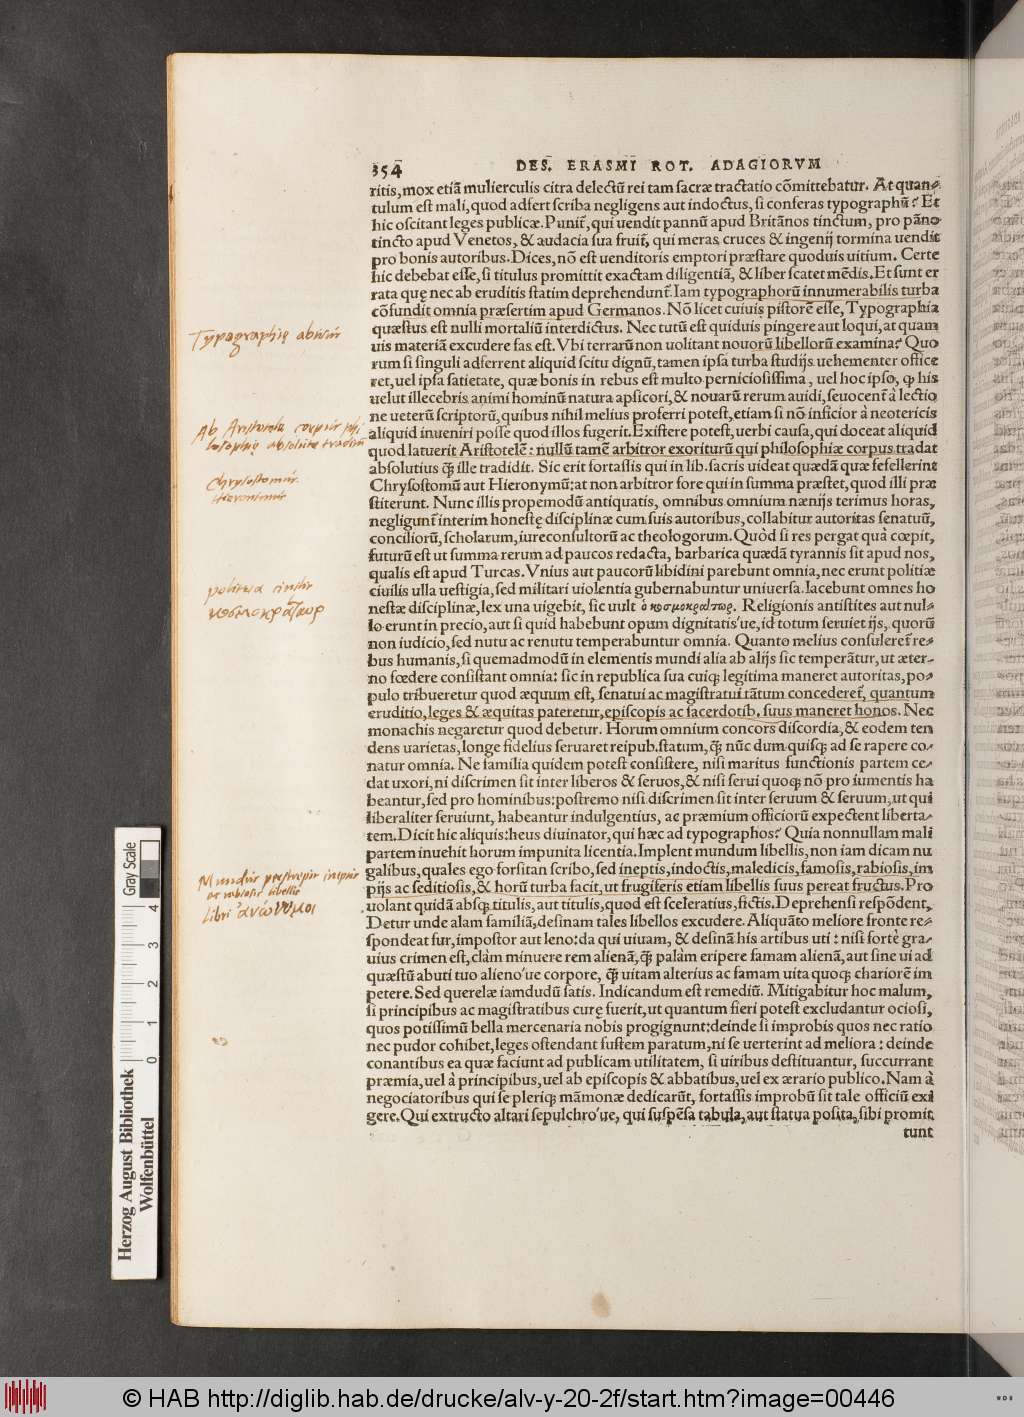 354 DES. ERASMI ROT. ADAGIORVM
ritis, mox etiã mulierculis citra delectũ rei tam sacræ tractatio cõmittebatur. At quan-
tulum est mali, quod adfert scriba negligens aut indoctus, si conferas typographũ? Et
hic oscitant leges publicæ. Punit᷑, qui uendit pannũ apud Britãnos tinctum, pro pãno
tincto apud Venetos, & audacia sua fruit᷑, qui meras cruces & ingenij tormina uendit
pro bonis autoribus. Dices, nõ est uenditoris emptori præstare quoduis uitium. Certe
hic debebat esse, si titulus promittit exactam diligentiã, & liber scatet mẽdis. Et sunt er
rata quę nec ab eruditis statim deprehendunt᷑. Iam typographorũ innumerabilis turba
cõfundit omnia, præsertim apud Germanos. Nõ licet cuiuis pistorẽ esse, Typographia
quæstus est nulli mortaliũ interdictus. Nec tutũ est quiduis pingere aut loqui, at quam
uis materiã excudere fas est. Vbi terrarũ non uolitant nouorũ libellorũ examina? Quo
rum si singuli adferrent aliquid scitu dignũ, tamen ipsa turba studijs uehementer office
ret, uel ipsa satietate, quæ bonis in rebus est multo perniciosissima, uel hoc ipso, ꝙ his
uelut illecebris animi hominũ natura apsicori, & nouarũ rerum auidi, seuocent᷑ à lectio
ne ueterũ scriptorũ, quibus nihil melius proferri potest, etiam si nõ inficior à neotericis
aliquid inueniri posse quod illos fugerit. Existere potest, uerbi causa, qui doceat aliquid
quod latuerit Aristotelẽ: nullũ tamẽ arbitror exoriturũ qui philosophiæ corpus tradat
absolutius ꝙ̃ ille tradidit. Sic erit fortassis qui in lib. sacris uideat quædã quæ fefellerint
Chrysostomũ aut Hieronymũ; at non arbitror fore qui in summa præstet, quod illi præ
stiterunt. Nunc illis propemodũ antiquatis, omnibus omnium nænijs terimus horas,
negligunt᷑ interim honestę disciplinæ cum suis autoribus, collabitur autoritas senatuũ,
conciliorũ, scholarum, iureconsultorũ ac theologorum. Quòd si res pergat quà cœpit,
futurũ est ut summa rerum ad paucos redacta, barbarica quædã tyrannis sit apud nos,
qualis est apud Turcas. Vnius aut paucorũ libidini parebunt omnia, nec erunt politiæ
ciuilis ulla uestigia, sed militari uiolentia gubernabuntur uniuersa. Iacebunt omnes ho
nestæ disciplinæ, lex una uigebit, sic uult ὁ κοσμοκράτωρ. Religionis antistites aut nul-
lo erunt in precio, aut si quid habebunt opum dignitatis'ue, id totum seruiet ijs, quorũ
non iudicio, sed nutu ac renutu temperabuntur omnia. Quanto melius consuleret᷑ re-
bus humanis, si quemadmodũ in elementis mundi alia ab alijs sic temperãtur, ut æter-
no fœdere consistant omnia: sic in republica sua cuiqꝫ legitima maneret autoritas, po-
pulo tribueretur quod æquum est, senatui ac magistratui tãtum concederet᷑, quantum
eruditio, leges & æquitas pateretur, episcopis ac sacerdotib. suus maneret honos. Nec
monachis negaretur quod debetur. Horum omnium concors discordia, & eodem ten
dens uarietas, longe fidelius seruaret reipub. statum, ꝙ̃ nũc dum quisqꝫ ad se rapere co-
natur omnia. Ne familia quidem potest consistere, nisi maritus functionis partem ce-
dat uxori, ni discrimen sit inter liberos & seruos, & nisi serui quoqꝫ nõ pro iumentis ha
beantur, sed pro hominibus: postremo nisi discrimen sit inter seruum & seruum, ut qui
liberaliter seruiunt, habeantur indulgentius, ac præmium officiorũ expectent liberta-
tem. Dicit hic aliquis: heus diuinator, qui hæc ad typographos? Quia nonnullam mali
partem inuehit horum impunita licentia. Implent mundum libellis, non iam dicam nu
galibus, quales ego forsitan scribo, sed ineptis, indoctis, maledicis, famosis, rabiosis, im
pijs ac seditiosis, & horũ turba facit, ut frugiferis etiam libellis suus pereat fructus. Pro
uolant quidã absqꝫ titulis, aut titulis, quod est sceleratius, fictis. Deprehensi respõdent,
Detur unde alam familiã, desinam tales libellos excudere. Aliquãto meliore fronte re-
spondeat fur, impostor aut leno: da qui uiuam, & desinã his artibus uti: nisi fortè gra-
uius crimen est, clàm minuere rem alienã, ꝙ̃ palàm eripere famam alienã, aut sine ui ad
quæstũ abuti tuo alieno'ue corpore, ꝙ̃ uitam alterius ac famam uita quoqꝫ chariorẽ im
petere. Sed querelæ iamdudũ satis. Indicandum est remediũ. Mitigabitur hoc malum,
si principibus ac magistratibus curę fuerit, ut quantum fieri potest excludantur ociosi,
quos potissimũ bella mercenaria nobis progignunt: deinde si improbis quos nec ratio
nec pudor cohibet, leges ostendant fustem paratum, ni se uerterint ad meliora: deinde
conantibus ea quæ faciunt ad publicam utilitatem, si uiribus destituantur, succurrant
præmia, uel à principibus, uel ab episcopis & abbatibus, uel ex ærario publico. Nam à
negociatoribus qui se pleriqꝫ mãmonæ dedicarũt, fortassis improbũ sit tale officiũ exi
gere. Qui extructo altari sepulchro'ue, qui suspẽsa tabula, aut statua posita, sibi promit
tunt
Typographię
Ab Aristotele corpus phi
losophię absolute
Chrysostomus
Hieronimus
κοσμοκράτωρ
Mundus
ac rabiosis libellis
Libri ἀνώνυμοι
Gray Scale
0 1 2 3 4
Herzog August Bibliothek
Wolfenbüttel
© HAB http://diglib.hab.de/drucke/alv-y-20-2f/start.htm?image=00446